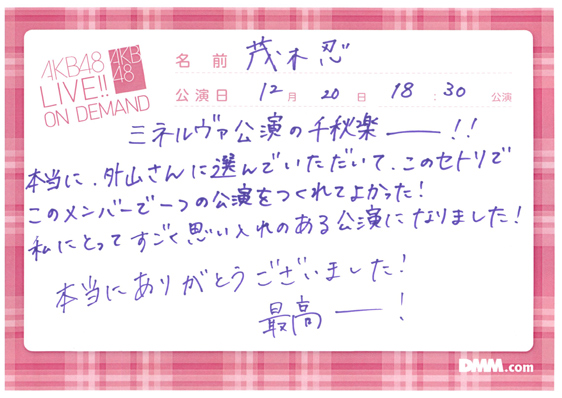 AKB48
LIVE!!
ON DEMAND
AKB
48
名前 茂木忍
公演日 12月 20日 18:30 公演
ミネルヴァ公演の千秋楽――!!
本当に、外山さんに選んでいただいて、このセトリで
このメンバーで一つの公演をつくれてよかった!
私にとってすごく思い入れのある公演になりました!
本当にありがとうございました!
最高――!
DMM.com